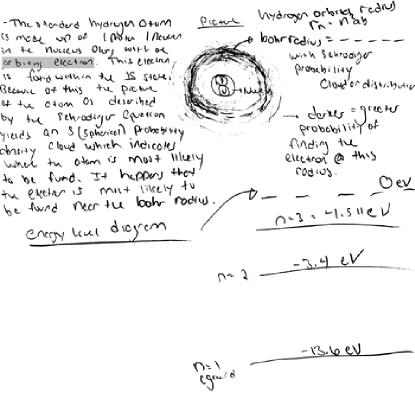 - The standard hydrogen atom
is made up of 1 proton 1 neutron
in the nucleus along with an
orbiting electron. This electron
is found within the 1s state.
Because of this the picture
of the atom as described
by the Schrodiger Equation
yields an S (spherical) Probability
density cloud which indicates
where the atom is most likely
to be found. It happens that
the electron is most likely to
be found near the bohr radius.
Picture
hydrogen orbital radius
bohr radius =
with Schrodiger
probability
cloud or distribution
→ darker = greater
probability of
finding the
electron @ this
radius.
energy level diagram
0 eV
n=3 = -1.511 eV
n=2
-3.4 eV
n=1
-13.6 eV